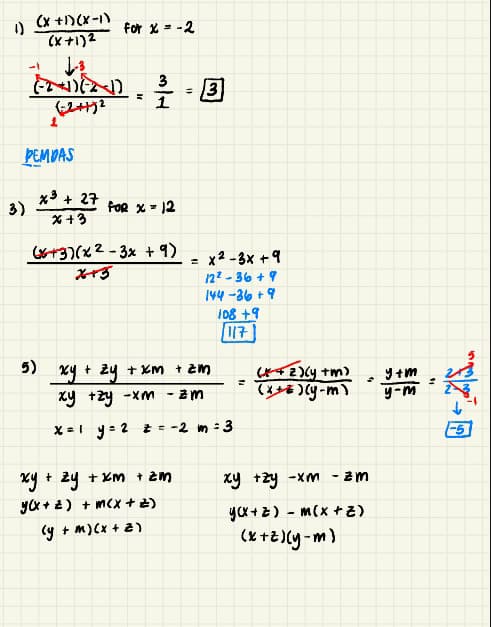 1) (x+1)(x-1) / (x+1)² for x = -2
-1 -3
(-2+1)(-2-1) / (-2+1)² = 3/1 = 3
1
PEMDAS
3) x³ + 27 / x+3 FOR x = 12
(x+3)(x² - 3x + 9) / x+3 = x² - 3x + 9
12² - 36 + 9
144 - 36 + 9
108 + 9
117
5) xy + zy + xm + zm / xy + zy - xm - zm = (x+z)(y+m) / (x+z)(y-m) = y+m / y-m = 2+3 / 2-3
5
-1
-5
x = 1 y = 2 z = -2 m = 3
xy + zy + xm + zm
y(x+z) + m(x+z)
(y + m)(x + z)
xy + zy - xm - zm
y(x+z) - m(x+z)
(x+z)(y-m)